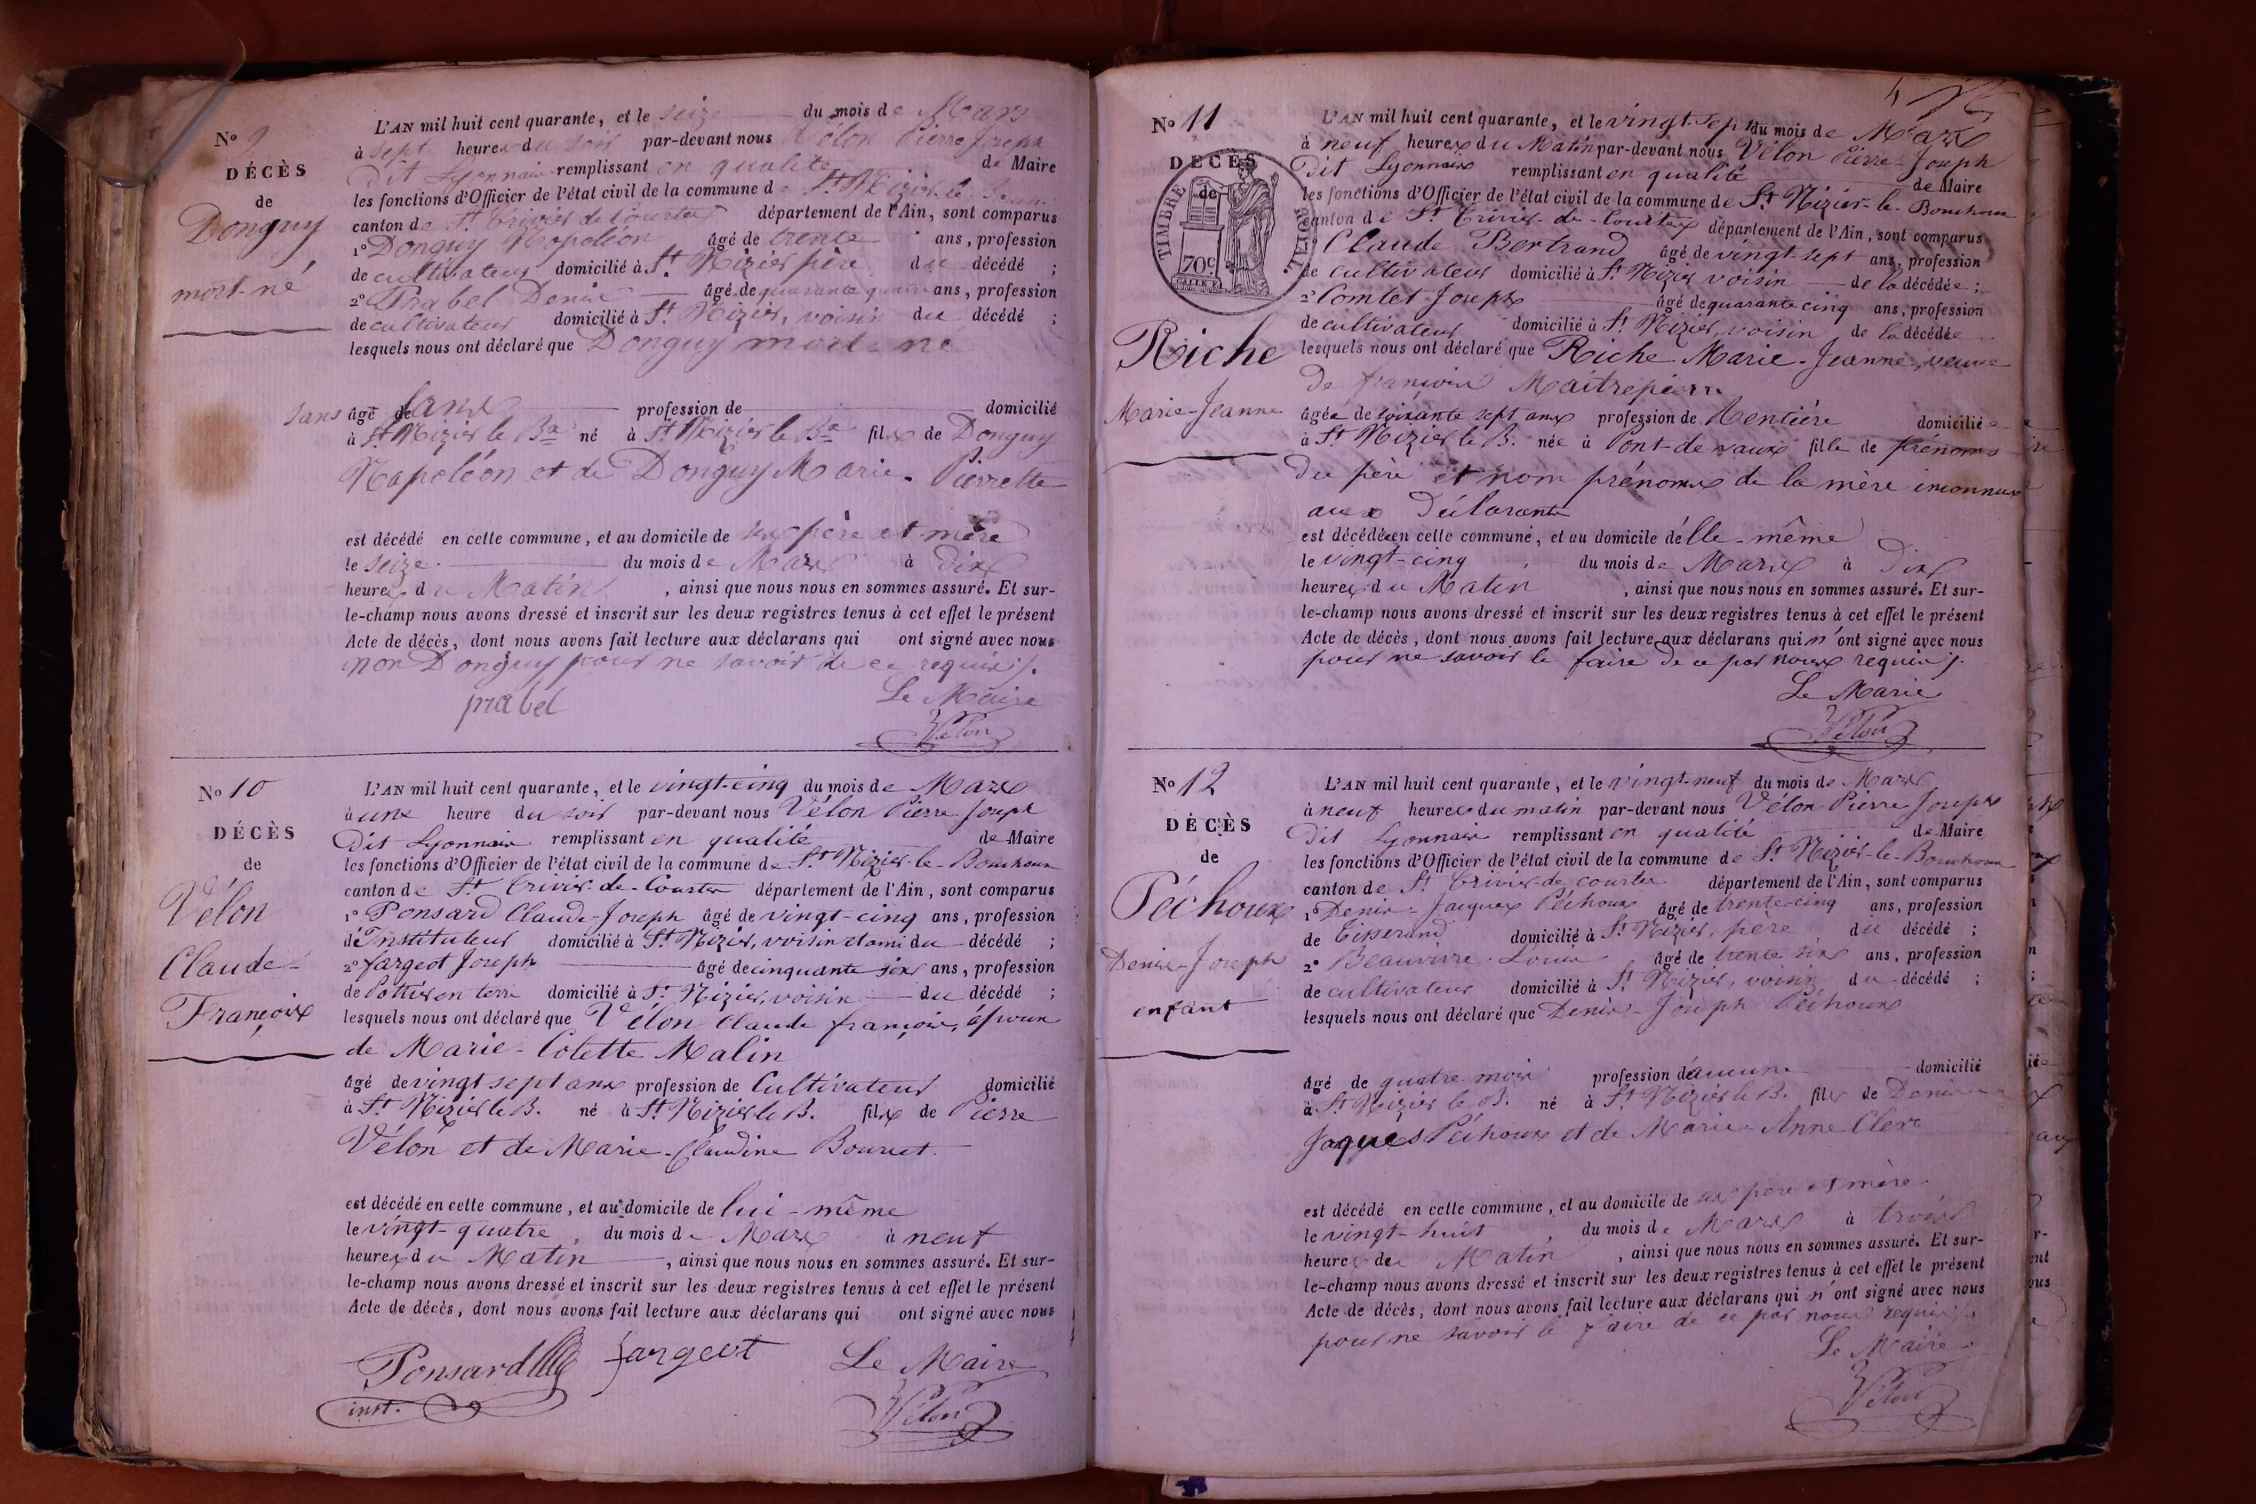 N° 9
DÉCÈS
de
Donguy
mort-né
L'AN mil huit cent quarante, et le seize du mois de Mars
à sept heures du soir par-devant nous Vélon Pierre Joseph
dit Lyonnais remplissant en qualité de Maire
les fonctions d'Officier de l'état civil de la commune de St Nizier-le-
canton de St Trivier de Courtes département de l'Ain, sont comparus
1° Donguy Napoléon âgé de trente ans, profession
de cultivateur domicilié à St Nizier père du décédé ;
2° Prabel Denis âgé de quarante quatre ans, profession
de cultivateur domicilié à St Nizier, voisin du décédé ;
lesquels nous ont déclaré que Donguy mort-né
sans âgé de sans profession de domicilié
à St Nizier le Bx né à St Nizier le Bx fils de Donguy
Napoléon et de Donguy Marie-Pierrette
est décédé en cette commune, et au domicile de ses père et mère
le seize du mois de Mars à dix
heures du Matin, ainsi que nous nous en sommes assuré. Et sur-
le-champ nous avons dressé et inscrit sur les deux registres tenus à cet effet le présent
Acte de décès, dont nous avons fait lecture aux déclarans qui ont signé avec nous
non Donguy pour ne savoir de ce requis /.
prabel Le Maire
Vélon
N° 10
DÉCÈS
de
Vélon
Claude-
François
L'AN mil huit cent quarante, et le vingt-cinq du mois de Mars
à une heure du soir par-devant nous Vélon Pierre Joseph
dit Lyonnais remplissant en qualité de Maire
les fonctions d'Officier de l'état civil de la commune de St Nizier-le-Bouchoux
canton de St Trivier-de-Courtes département de l'Ain, sont comparus
1° Ponsard Claude-Joseph âgé de vingt-cinq ans, profession
d'Instituteur domicilié à St Nizier, voisin et ami du décédé ;
2° fargeot Joseph âgé de cinquante six ans, profession
de Pottier en terre domicilié à St Nizier, voisin du décédé ;
lesquels nous ont déclaré que Vélon Claude françois, époux
de Marie-Colette Malin
âgé de vingt sept ans profession de Cultivateur domicilié
à St Nizier le B. né à St Nizier le B. fils de Pierre
Vélon et de Marie-Claudine Bourcet.
est décédé en cette commune, et au domicile de lui-même
le vingt-quatre du mois de Mars à neuf
heures du Matin, ainsi que nous nous en sommes assuré. Et sur-
le-champ nous avons dressé et inscrit sur les deux registres tenus à cet effet le présent
Acte de décès, dont nous avons fait lecture aux déclarans qui ont signé avec nous
Ponsard fargeot Le Maire
inst. Vélon
N° 11
DÉCÈS
de
TIMBRE ROYAL.
70c
Riche
Marie-Jeanne
L'AN mil huit cent quarante, et le vingt-sept du mois de Mars
à neuf heures du Matin par-devant nous Vélon Pierre-Joseph
dit Lyonnais remplissant en qualité de Maire
les fonctions d'Officier de l'état civil de la commune de St Nizier-le-Bouchoux
canton de St Trivier-de-Courtes département de l'Ain, sont comparus
1° Claude Bertrand âgé de vingt-sept ans, profession
de cultivateur domicilié à St Nizier voisin de la décédée ;
2° Comtet Joseph âgé de quarante cinq ans, profession
de cultivateur domicilié à St Nizier, voisin de la décédée
lesquels nous ont déclaré que Riche Marie-Jeanne, veuve
de françois Maitrepierre
âgée de soixante sept ans profession de Rentière domiciliée
à St Nizier le B. née à Pont-de-vaux fille de prénoms
du père et nom prénoms de la mère inconnus
aux Déclarants
est décédée en cette commune, et au domicile d'elle-même
le vingt-cinq du mois de Mars à dix
heures du Matin, ainsi que nous nous en sommes assuré. Et sur-
le-champ nous avons dressé et inscrit sur les deux registres tenus à cet effet le présent
Acte de décès, dont nous avons fait lecture aux déclarans qui n'ont signé avec nous
pour ne savoir le faire de ce par nous requis /.
Le Marie
Vélon
N° 12
DÉCÈS
de
Péchoux
Denis-Joseph
enfant
L'AN mil huit cent quarante, et le vingt-neuf du mois de Mars
à neuf heures du matin par-devant nous Vélon Pierre Joseph
dit Lyonnais remplissant en qualité de Maire
les fonctions d'Officier de l'état civil de la commune de St Nizier-le-Bouchoux
canton de St Trivier-de-courtes département de l'Ain, sont comparus
1° Denis-Jacques Péchoux âgé de trente-cinq ans, profession
de Tisserand domicilié à St Nizier, père du décédé ;
2° Beauvirre Louis âgé de trente six ans, profession
de cultivateur domicilié à St Nizier, voisin du décédé ;
lesquels nous ont déclaré que Denis-Joseph Péchoux
âgé de quatre mois profession d'aucune domicilié
à St Nizier le B. né à St Nizier le B. fils de Denis
Jaques Péchoux et de Marie-Anne Clerc
est décédé en cette commune, et au domicile de ses père et mère.
le vingt-huit du mois de Mars à trois
heures de Matin, ainsi que nous nous en sommes assuré. Et sur-
le-champ nous avons dressé et inscrit sur les deux registres tenus à cet effet le présent
Acte de décès, dont nous avons fait lecture aux déclarans qui n'ont signé avec nous
pour ne savoir le faire de ce par nous requis /.
Le Maire
Vélon